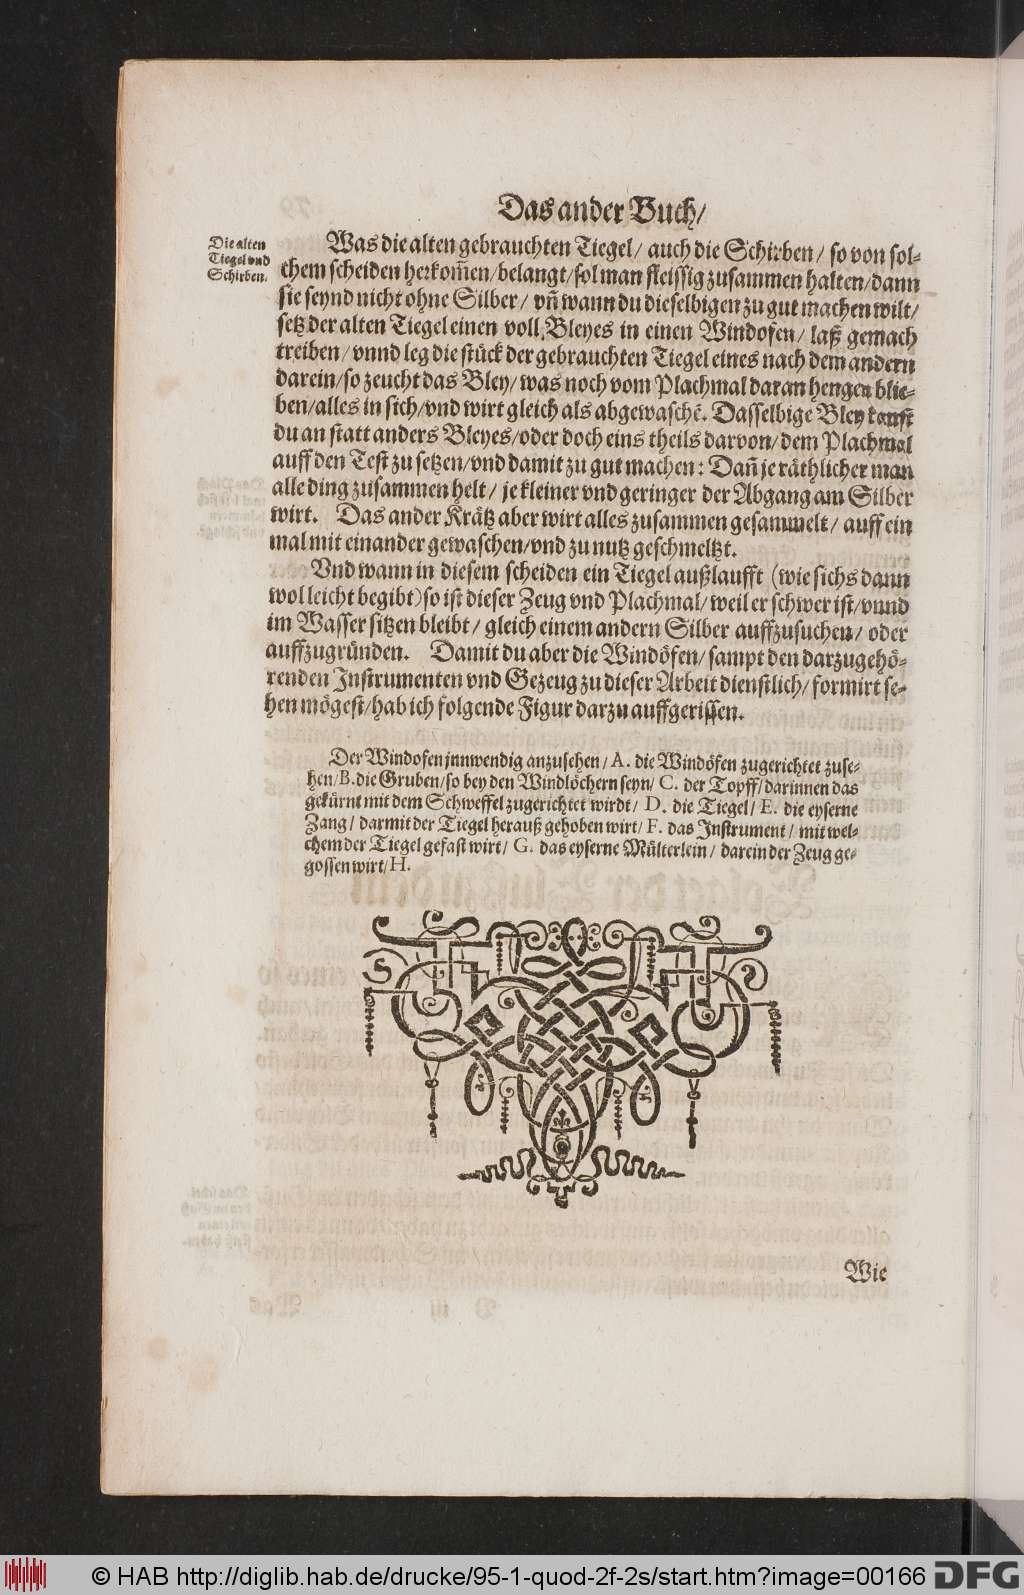 Das ander Buch/
Die alten
Tiegel vnd
Schirben.
Was die alten gebrauchten Tiegel/ auch die Schirben/ so von sol-
chem scheiden herkom̄en/belangt/sol man fleissig zusammen halten/dann
sie seynd nicht ohne Silber/ vn̄ wann du dieselbigen zu gut machen wilt/
setz der alten Tiegel einen voll Bleyes in einen Windofen/ laß gemach
treiben/vnnd leg die stück der gebrauchten Tiegel eines nach dem andern
darein/so zeucht das Bley/was noch vom Plachmal daran hengen blie-
ben/alles in sich/vnd wirt gleich als abgewaschē. Dasselbige Bley kanst
du an statt anders Bleyes/oder doch eins theils darvon/dem Plachmal
auff den Test zu setzen/vnd damit zu gut machen: Dan̄ je räthlicher man
alle ding zusammen helt/ je kleiner vnd geringer der Abgang am Silber
wirt. Das ander Krätz aber wirt alles zusammen gesammelt/ auff ein
mal mit einander gewaschen/vnd zu nutz geschmeltzt.
Vnd wann in diesem scheiden ein Tiegel außlaufft (wie sichs dann
wol leicht begibt) so ist dieser Zeug vnd Plachmal/weil er schwer ist/vnnd
im Wasser sitzen bleibt/ gleich einem andern Silber auffzusuchen/ oder
auffzugründen. Damit du aber die Windöfen/sampt den darzugehö-
renden Instrumenten vnd Gezeug zu dieser Arbeit dienstlich/formirt se-
hen mögest/hab ich folgende Figur darzu auffgerissen.
Der Windofen jnnwendig anzusehen/A. die Windöfen zugerichtet zuse-
hen/B. die Gruben/so bey den Windlöchern seyn/ C. der Topff/darinnen das
gekürnt mit dem Schweffel zugerichtet wirdt/ D. die Tiegel/E. die eyserne
Zang/ darmit der Tiegel herauß gehoben wirt/F. das Instrument/ mit wel-
chem der Tiegel gefast wirt/ G. das eyserne Mülterlein/ darein der Zeug ge-
gossen wirt/H.
Wie
© HAB http://diglib.hab.de/drucke/95-1-quod-2f-2s/start.htm?image=00166
DFG